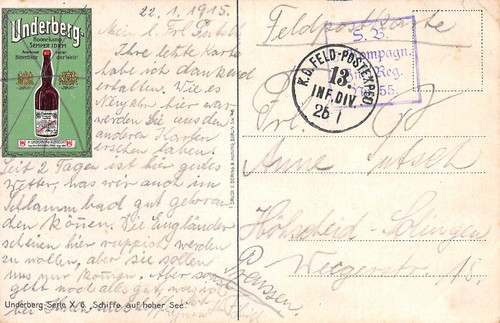 22.1.1915.
Underberg
Boonekamp
SEMPER IDEM
Mein l. Frl.
Ihre letzte Karte
habe ich dankend
erhalten. Wie es
Neujahr hier war
werden Sie aus den
anderen Karten
ersehen haben.
Seit 2 Tagen ist hier gutes
Wetter, was wir auch im
Schlammbad gut gebrau
den können. Die Engländer
scheinen hier ruppisch werden
zu wollen, aber sie sollen
uns nur kommen. Aber sonst
geht noch alles gut, was
bei Ihnen
Underberg-Serie X/6. „Schiffe auf hoher See."
Feldpostkarte
S. B.
Compagn.
Reg.
55.
K.D. FELD-POSTEXPED
13.
INF. DIV.
26 1
Frl.
Anne
Höhscheid-Solingen
Weyerstr. 18.
Preussen.